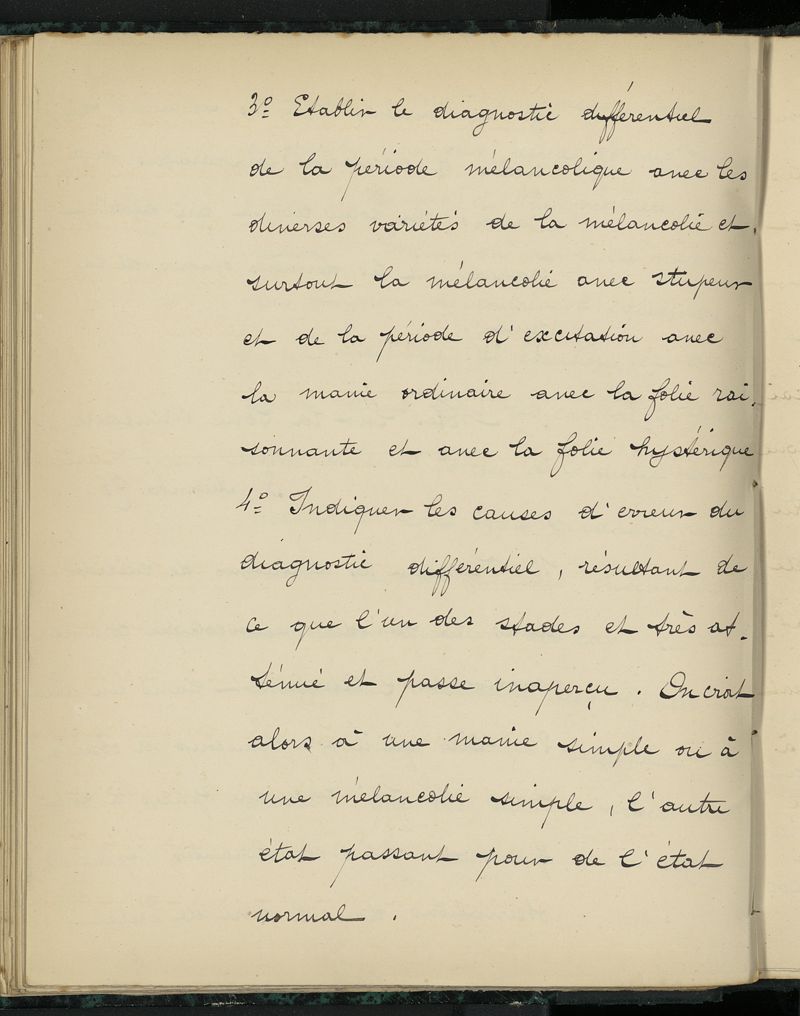 3º Etablir le diagnostic différentiel
de la période mélancolique avec les
diverses variétés de la mélancolie et
surtout la mélancolie avec stupeur
et de la période d'excitation avec
la manie ordinaire avec la folie rai-
sonnante et avec la folie hystérique
4º Indiquer les causes d'erreur du
diagnostic différentiel, résultant de
ce que l'un des stades et très at-
ténué et passe inaperçu. On croit
alors à une manie simple ou à
une mélancolie simple, l'autre
état passant pour de l'état
normal.